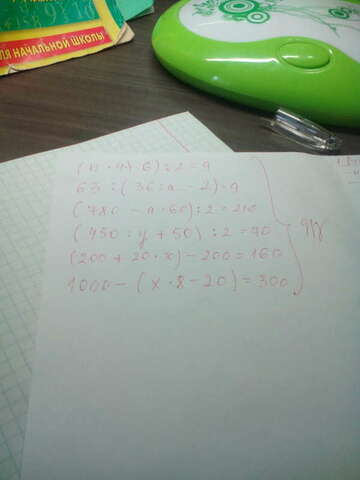 ЛЯ НАЧАЛЬНОЙ ШКОЛЫ
63 : (36 : a - 2) = 9
(780 - a · 60) : 2 = 210
(450 : y + 50) : 2 = 70
(200 + 20 · x) - 200 = 160
1000 - (x · 8 - 20) = 300